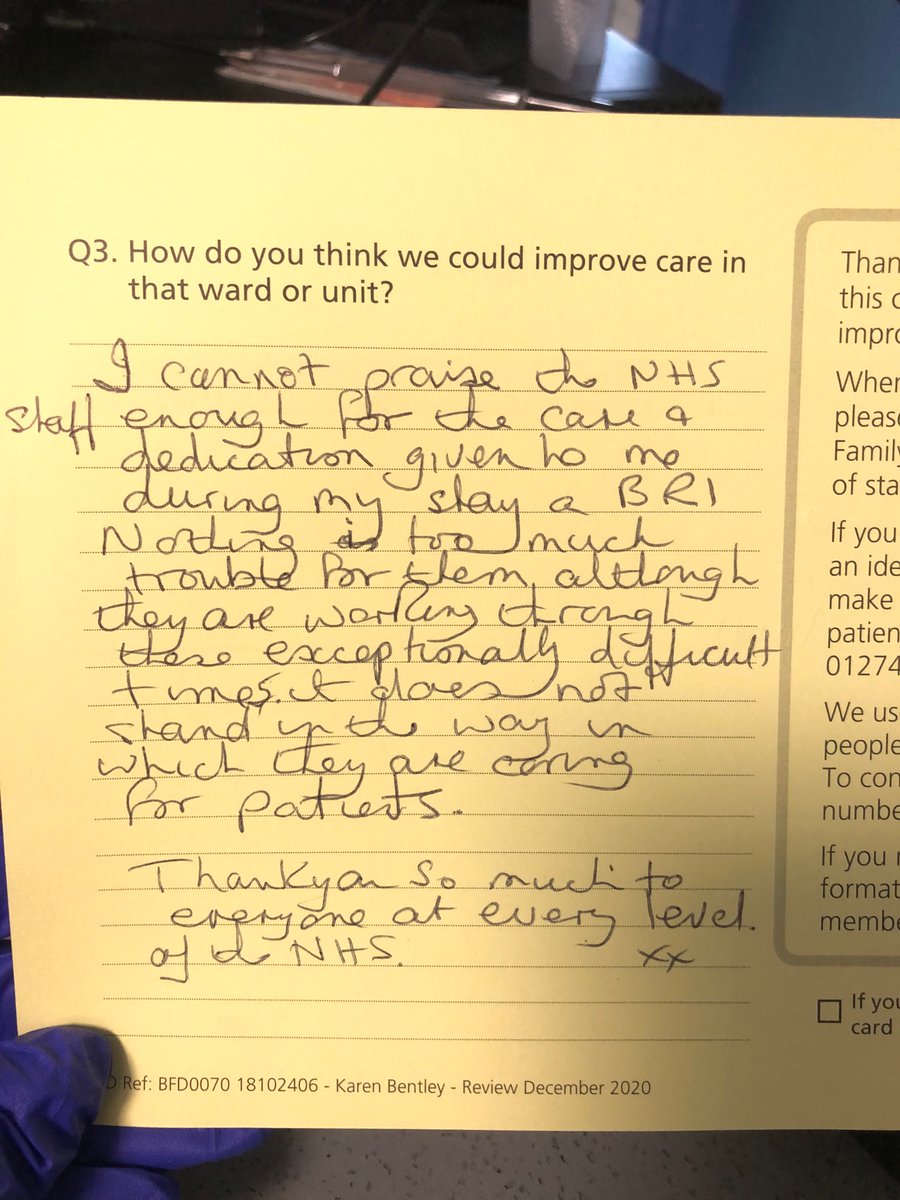 Q3. How do you think we could improve care in
that ward or unit?
I cannot praise the NHS
staff enough for the care &
dedication given to me
during my stay a BRI
Nothing is too much
trouble for them, although
they are working through
these exceptionally difficult
times. It does not
stand in the way in
which they are caring
for patients.
Thankyou so much to
everyone at every level.
of the NHS. xx
Ref: BFD0070 18102406 - Karen Bentley - Review December 2020
Than
this c
impro
When
please
Family
of sta
If you
an ide
make
patien
01274
We us
people
To con
numbe
If you
format
membe
If you
card